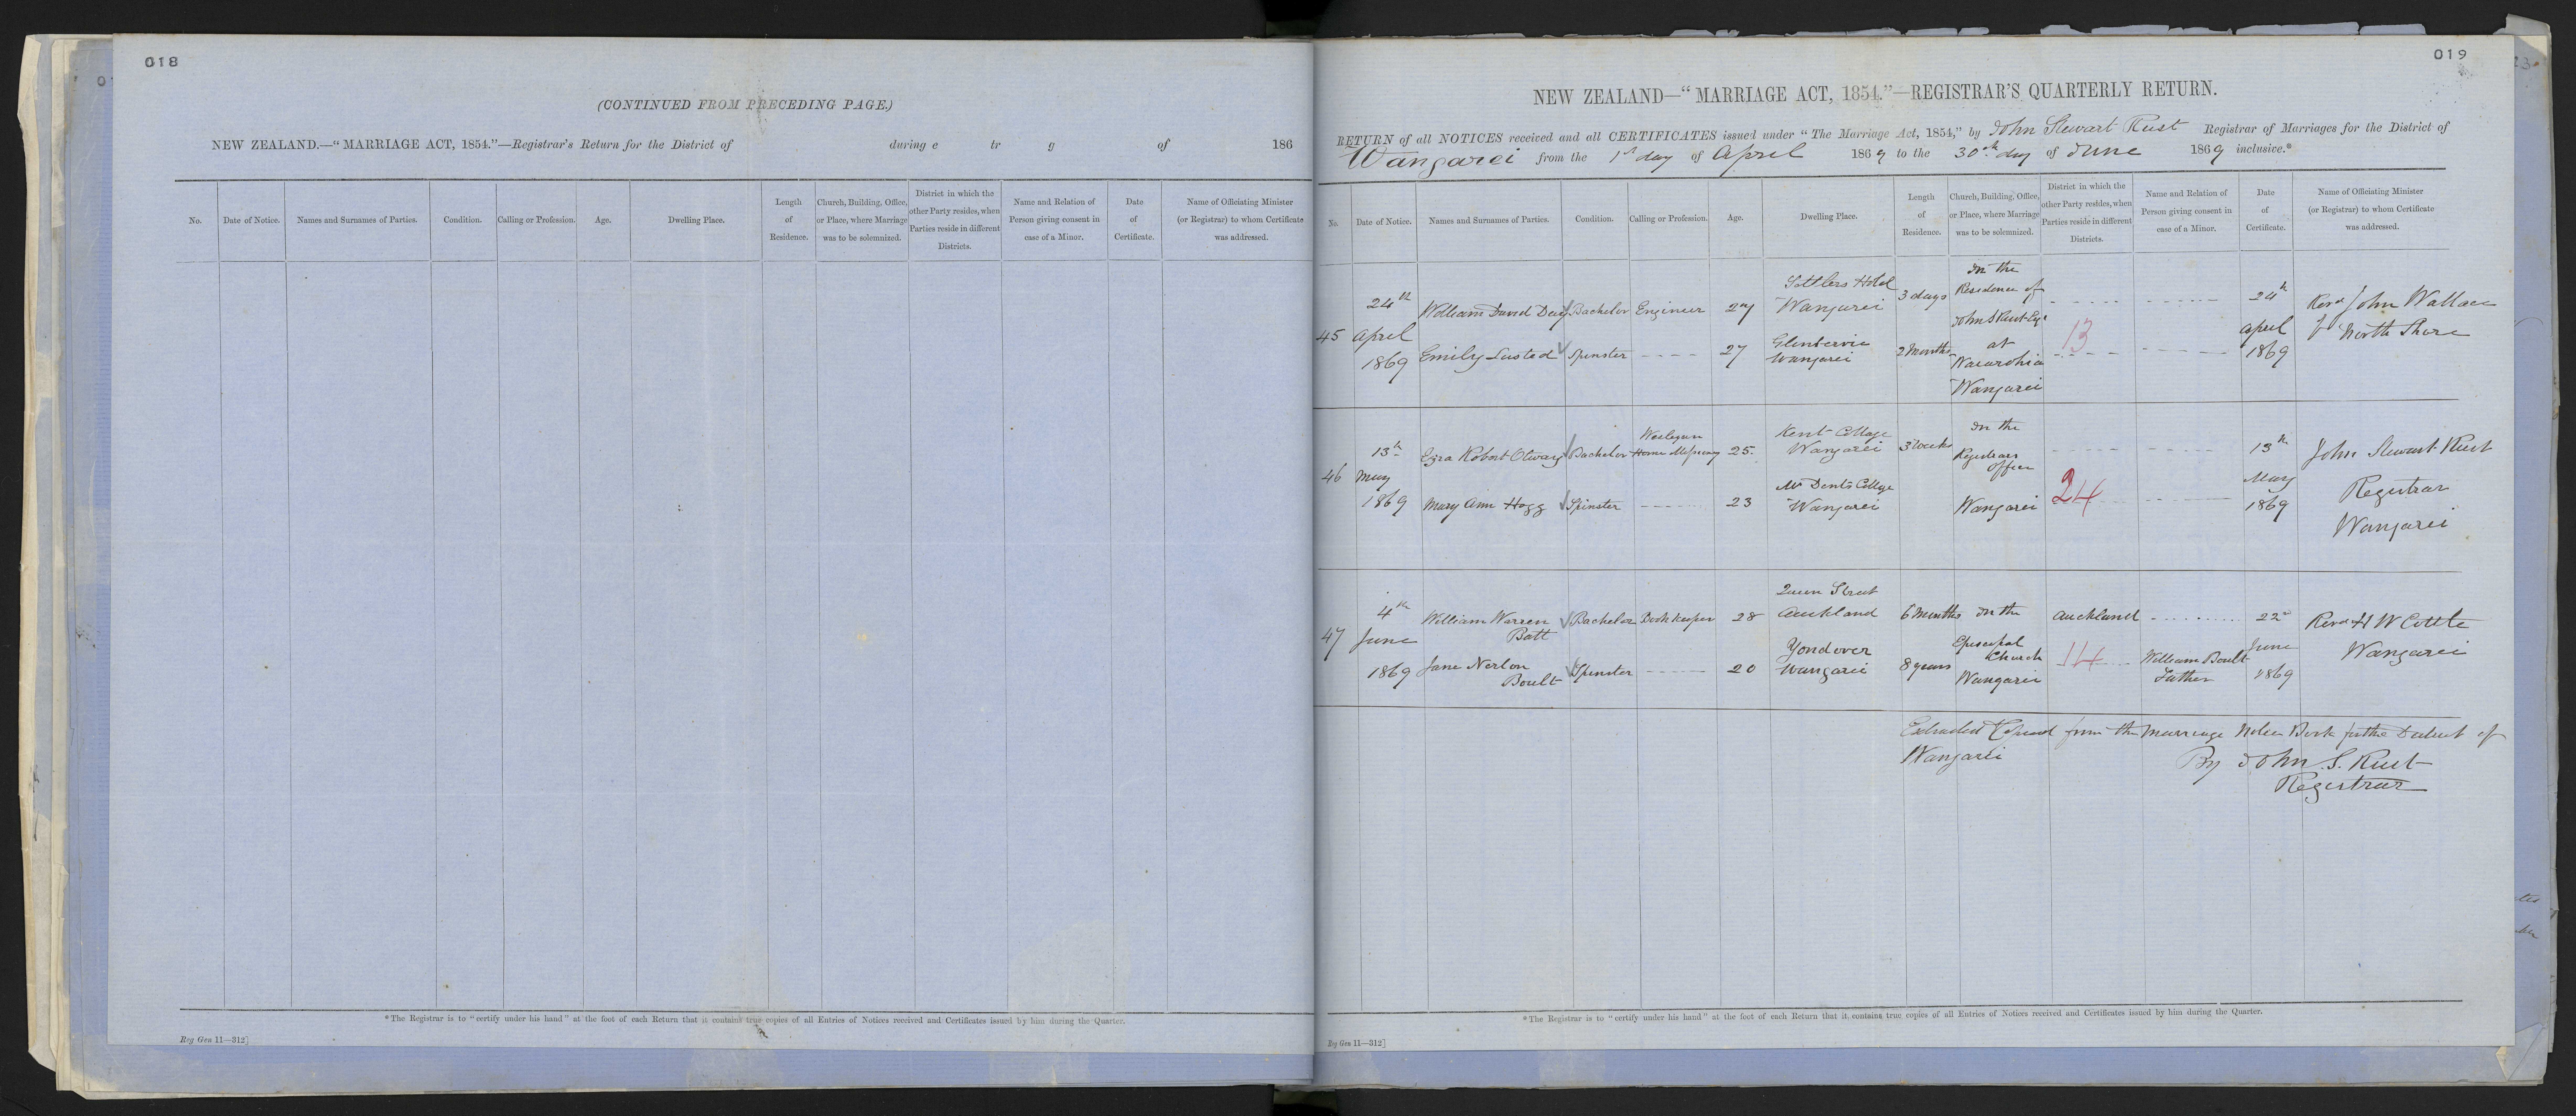 018
(CONTINUED FROM PRECEDING PAGE.)
NEW ZEALAND.—"MARRIAGE ACT, 1854."—Registrar's Return for the District of during e tr g of 186
No.
Date of Notice.
Names and Surnames of Parties.
Condition.
Calling or Profession.
Age.
Dwelling Place.
Length
of
Residence.
Church, Building, Office,
or Place, where Marriage
was to be solemnized.
District in which the
other Party resides, when
Parties reside in different
Districts.
Name and Relation of
Person giving consent in
case of a Minor.
Date
of
Certificate.
Name of Officiating Minister
(or Registrar) to whom Certificate
was addressed.
*The Registrar is to "certify under his hand" at the foot of each Return that it contains true copies of all Entries of Notices received and Certificates issued by him during the Quarter.
Reg Gen 11—312]
019
NEW ZEALAND—"MARRIAGE ACT, 1854."—REGISTRAR'S QUARTERLY RETURN.
RETURN of all NOTICES received and all CERTIFICATES issued under "The Marriage Act, 1854," by John Stewart Rust Registrar of Marriages for the District of
Wangarei from the 1st day of April 1869 to the 30th day of June 1869 inclusive.*
No.
Date of Notice.
Names and Surnames of Parties.
Condition.
Calling or Profession.
Age.
Dwelling Place.
Length
of
Residence.
Church, Building, Office,
or Place, where Marriage
was to be solemnized.
District in which the
other Party resides, when
Parties reside in different
Districts.
Name and Relation of
Person giving consent in
case of a Minor.
Date
of
Certificate.
Name of Officiating Minister
(or Registrar) to whom Certificate
was addressed.
45
24th
April
1869
William David Dey
Bachelor
Engineer
27
Settlers Hotel
Wangarei
3 days
Emily Lusted
Spinster
27
Glenbervie
Wangarei
2 Months
In the
Residence of
John S Rust Esqr
at
Wangarei
13
24th
April
1869
Revd John Wallace
North Shore
46
13th
May
1869
Ezra Robert Otway
Bachelor
Wesleyan
Home Missionary
25
Kent Cottage
Wangarei
3 Weeks
Mary Ann Hogg
Spinster
23
Mr Dents Cottage
Wangarei
In the
Registrars
office
Wangarei
24
13th
May
1869
John Stewart Rust
Registrar
Wangarei
47
4th
June
1869
William Warren
Batt
Bachelor
Bookkeeper
28
Queen Street
Auckland
6 Months
Jane Norton
Boult
Spinster
20
Yondover
Wangarei
8 years
In the
Episcopal
Church
Wangarei
Auckland
14
William Boult
Father
22d
June
1869
Revd H W
Wangarei
Extracted & Copied from the Marriage Notice Book for the District of
Wangarei
By John S. Rust
Registrar
*The Registrar is to "certify under his hand" at the foot of each Return that it contains true copies of all Entries of Notices received and Certificates issued by him during the Quarter.
Reg Gen 11—312]